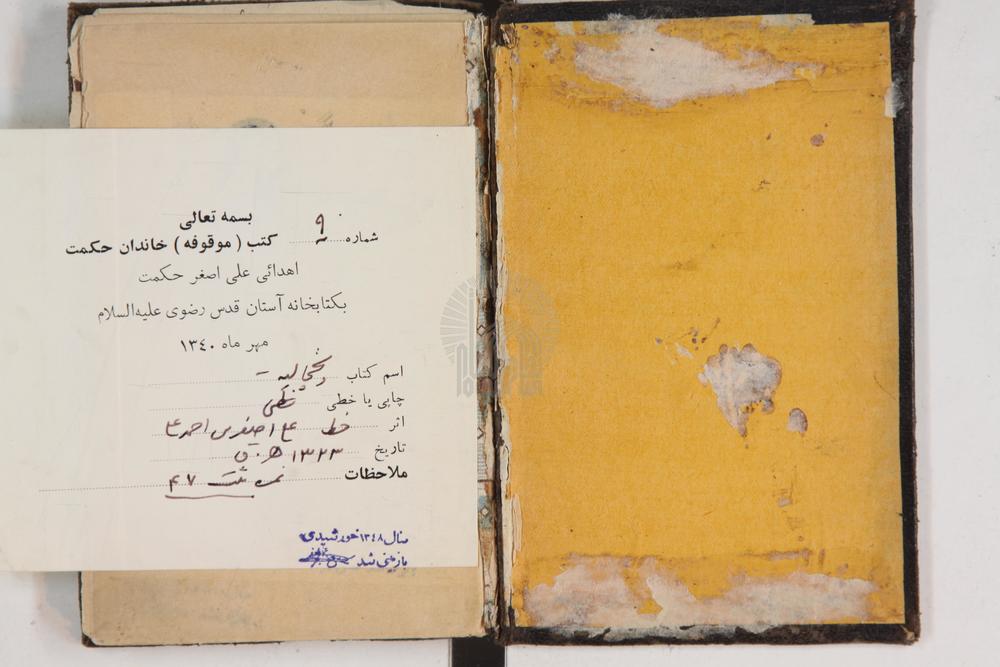 بسمه تعالی
شماره ۹۰ کتب ( موقوفه ) خاندان حکمت
اهدائی علی اصغر حکمت
بکتابخانه آستان قدس رضوی علیه‌السلام
مهر ماه ۱۳۴۰
اسم کتاب
چاپی یا خطی خطی
اثر خط علی اصغر بن احمد علی
تاریخ ۱۳۲۳ ه.ق
ملاحظات نمره ثبت ۴۷
سال ۱۳۴۸ خورشیدی
بازبینی شد